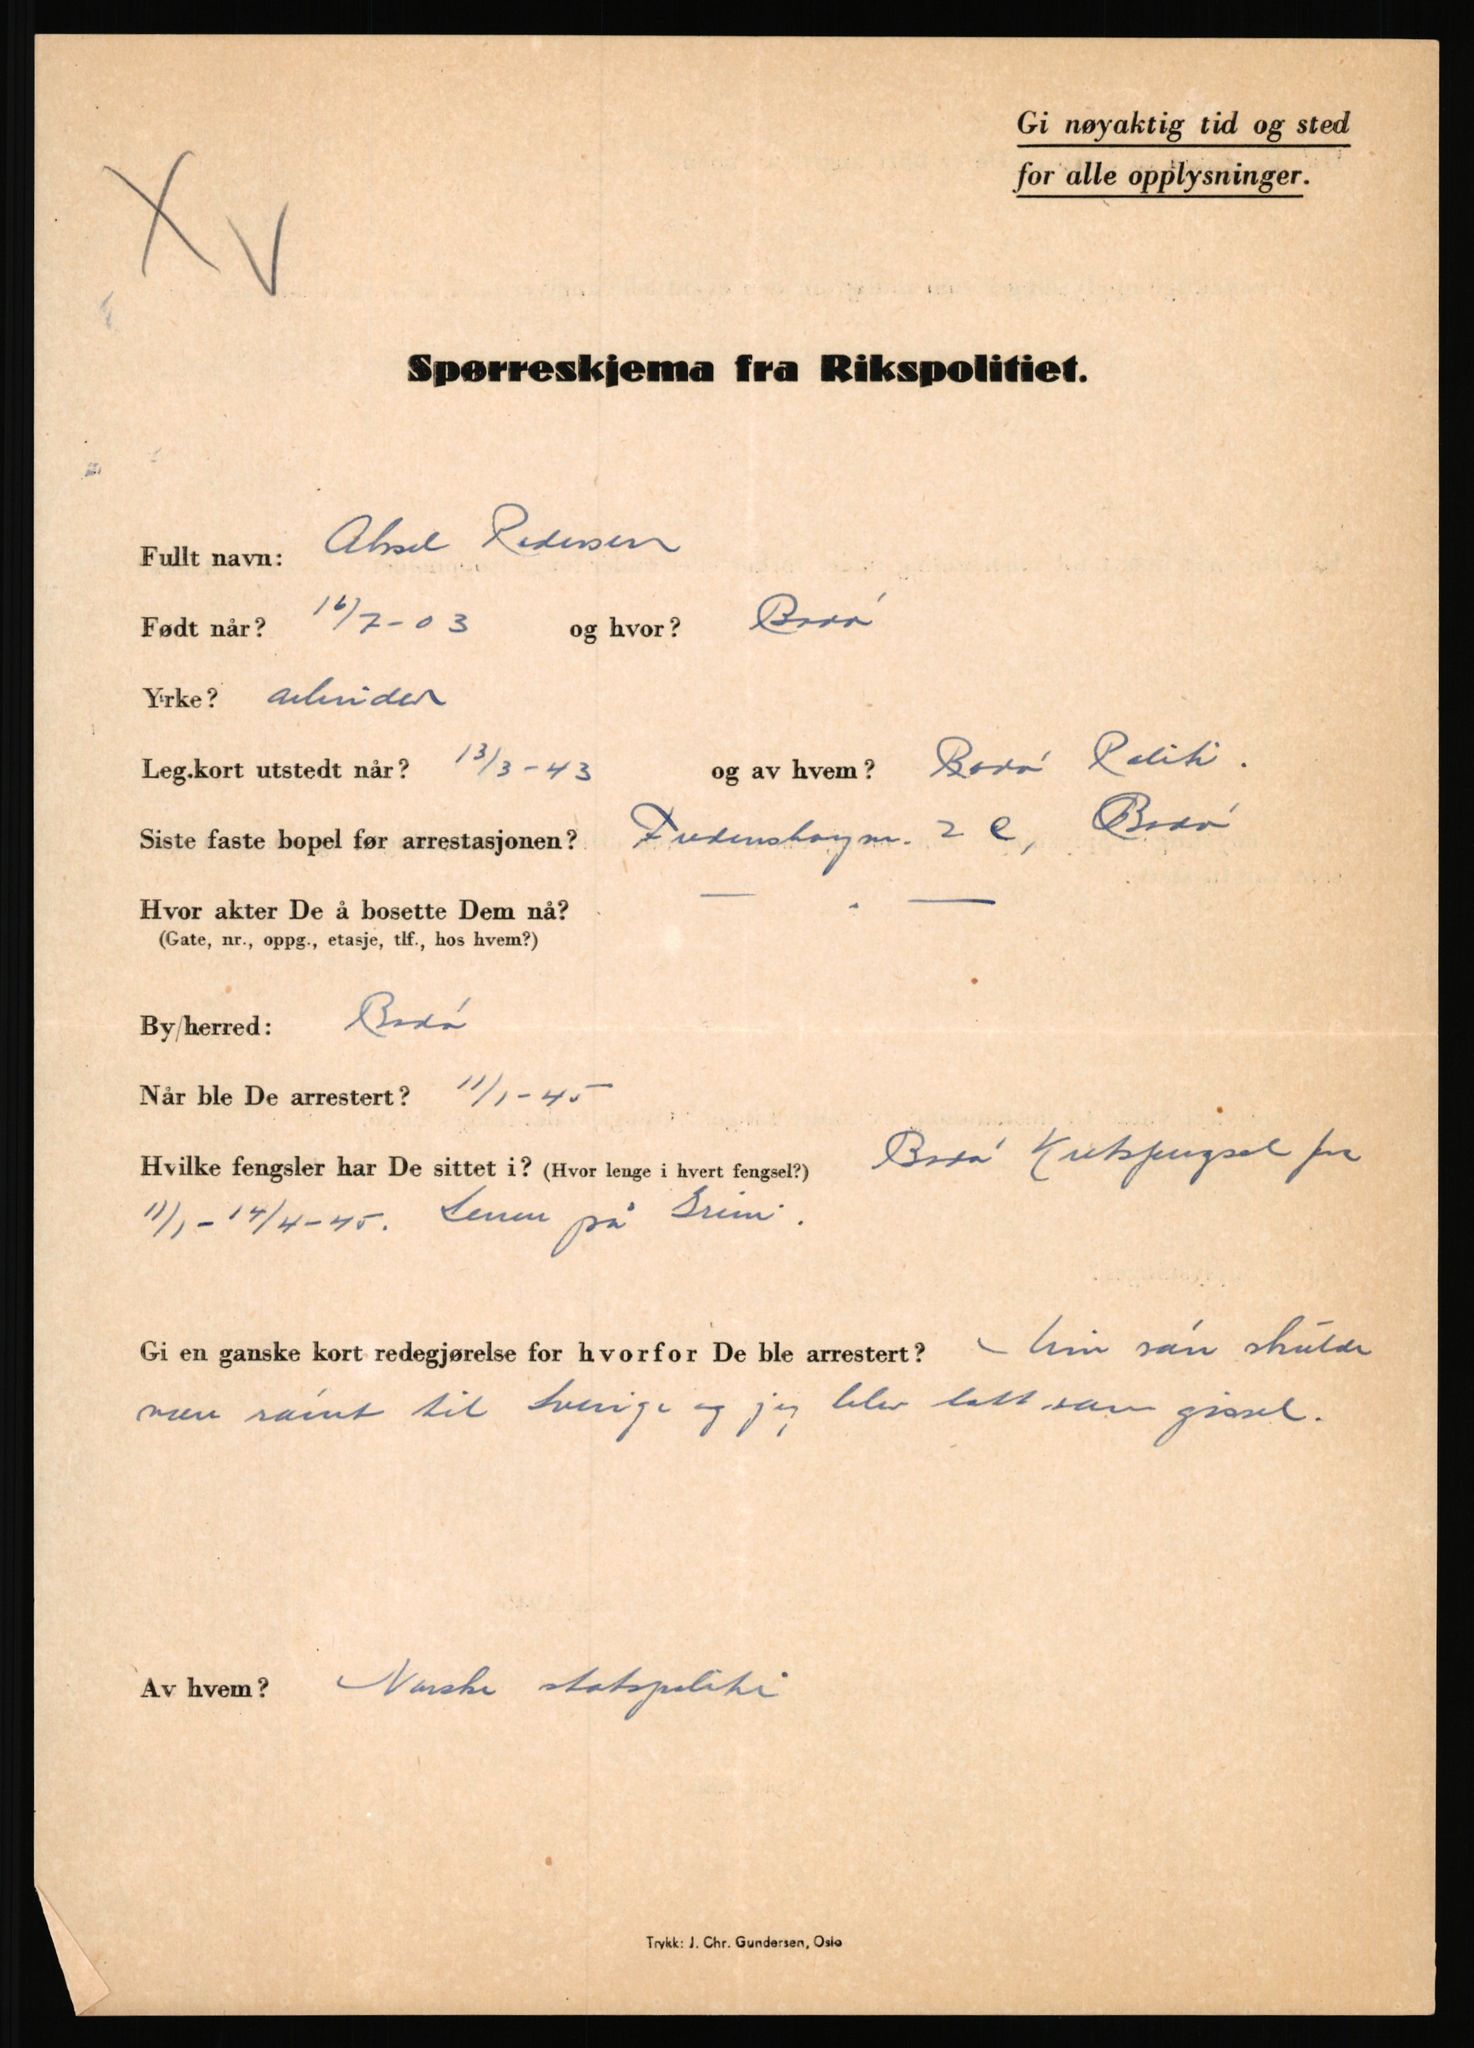 Gi nøyaktig tid og sted
for alle opplysninger.
X V
Spørreskjema fra Rikspolitiet.
Fullt navn: Aksel Pedersen
Født når? 16/7-03 og hvor? Bodø
Yrke? arbeider
Leg.kort utstedt når? 13/3-43 og av hvem? Bodø Politi.
Siste faste bopel før arrestasjonen? 2 c, Bodø
Hvor akter De å bosette Dem nå? — " —
(Gate, nr., oppg., etasje, tlf., hos hvem?)
By/herred: Bodø
Når ble De arrestert? 11/1-45
Hvilke fengsler har De sittet i? (Hvor lenge i hvert fengsel?) Bodø Kretsfengsel fra
11/1-14/4-45. Senere på Grini.
Gi en ganske kort redegjørelse for hvorfor De ble arrestert? Min søn skulde
være rømt til Sverige og jeg blev tatt som gissel.
Av hvem? Norske statspoliti
Trykk: J. Chr. Gundersen, Oslo